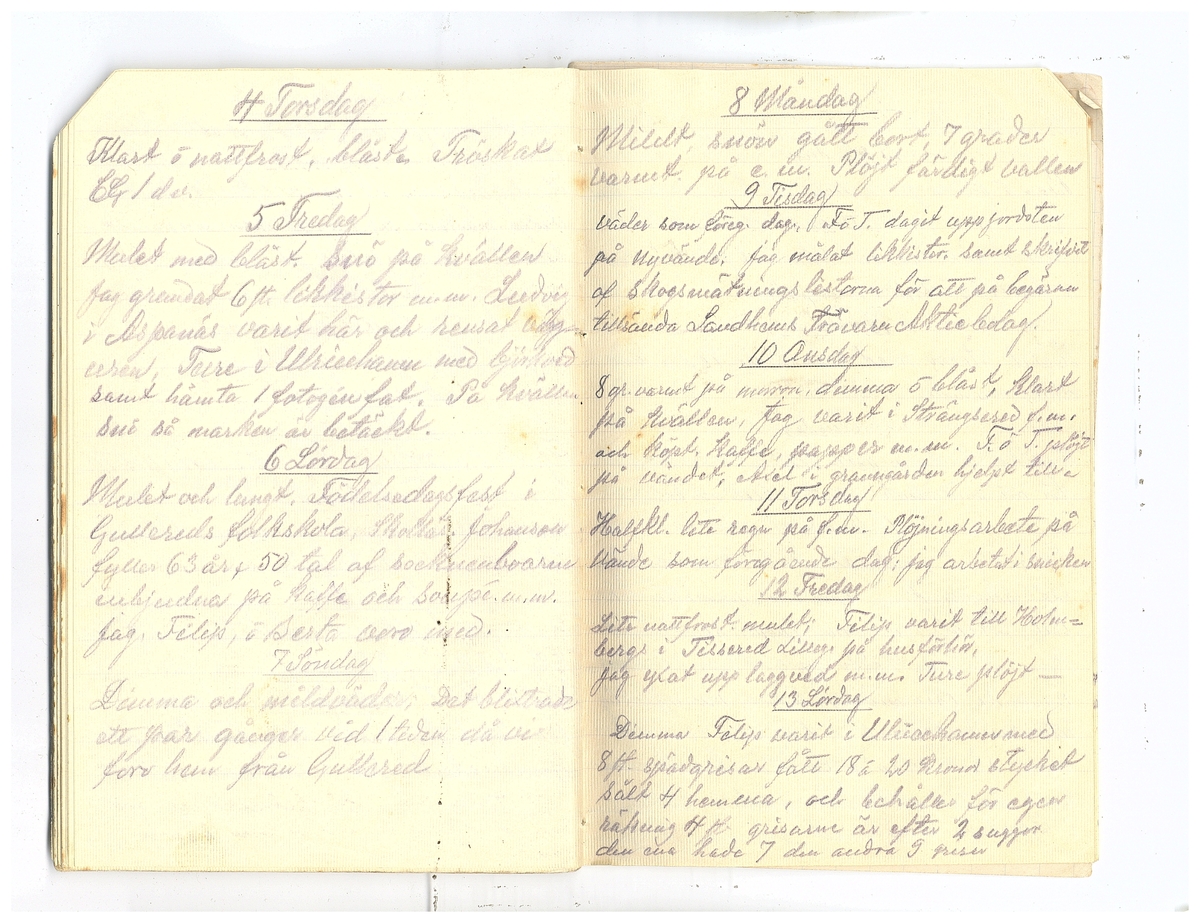 4 Torsdag
Klart ö nattfrost, blåst. Tröskat
1 dv.
5 Fredag
Mulet med blåst. Snö på kvällen
Jag grundat 6 st. likkistor m.m. Ludvig
i Aspanäs varit här och rensat
Ture i Ulricehamn med björkved
samt hämta 1 fotogenfat. På kvällen
snö så marken är betäckt.
6 Lördag
Mulet och lungt. Födelsedagsfest i
Gullereds folkskola, Johanson
fyller 63 år, 50 tal af socknenboarna
inbjudna på kaffe och soupé. m.m.
jag, Filip, ö Berta voro med.
7 Söndag
Dimma och mildväder; Det blixtrade
ett par gånger vid 1 tiden då vi
foro hem från Gullered
8 Måndag
Mildt, snön gått bort, 7 grader
varmt. på e.m. Plöjt färdigt vallen
9 Tisdag
väder som föreg. dag. F ö T. dagit upp jordsten
på nyvände. jag målat likkistor. samt skrifvit
af skogsmätningslistorna för att på begäran
tillsända Sandhems Trävaru Aktiebolag.
10 Onsdag
8 gr. varmt på morron, dimma ö blåst, klart
på kvällen, Jag varit i Strängsered f.m.
och köpt kaffe, papper m.m. F. ö T. plöjt
på vändet, Axel i granngården hjelpt till
11 Torsdag
Halfkl. lite regn på f.m. Plöjningsarbete på
vände som föregående dag; jag arbetat i snicken
12 Fredag
Lite nattfrost. mulet; Filip varit till Holm=
bergs i Tissered på husförhör,
jag yxat upp laggved m.m. Ture plöjt —
13 Lördag
Dimma Filip varit i Ulricehamn med
8 st spädgrisar fått 18 á 20 Kronor stycket
sålt 4 hemma, och behåller för egen
räkning 4 st. grisarne är efter 2 suggor
den ena hade 7 den andra 9 griser